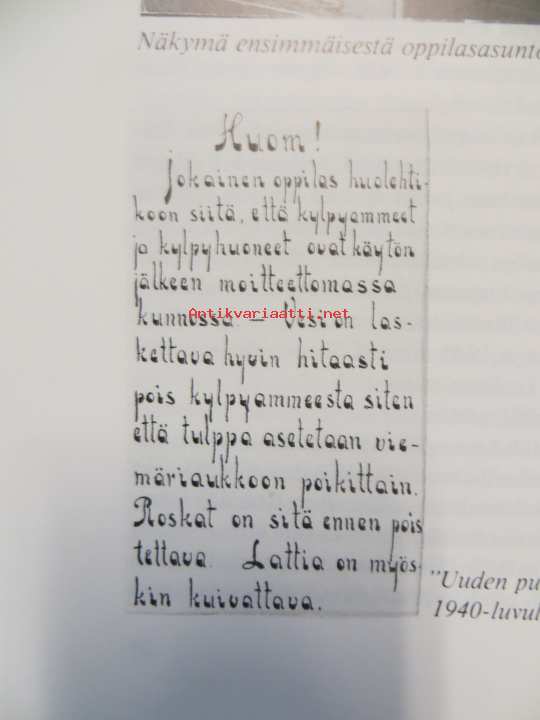 Näkymä ensimmäisestä oppilasasunto
Huom!
Jokainen oppilas huolehti-
koon siitä, että kylpyammeet
ja kylpyhuoneet ovat käytön
jälkeen moitteettomassa
kunnossa. – Vesi on las-
Antikvariaatti.net
kettava hyvin hitaasti
pois kylpyammeesta siten
että tulppa asetetaan vie-
märiaukkoon poikittain.
Roskat on sitä ennen pois
tettava. Lattia on myös-
kin kuivattava.
"Uuden pu
1940-luvul